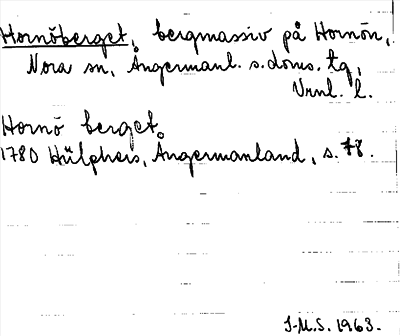 Hornöberget, bergmassiv på Hornön,
Nora sn, Ångermanl. s. doms. tg,
Vrnl. l.
Hornö berget.
1780 Hülphers, Ångermanland, s. 78.
J-M.S. 1963.